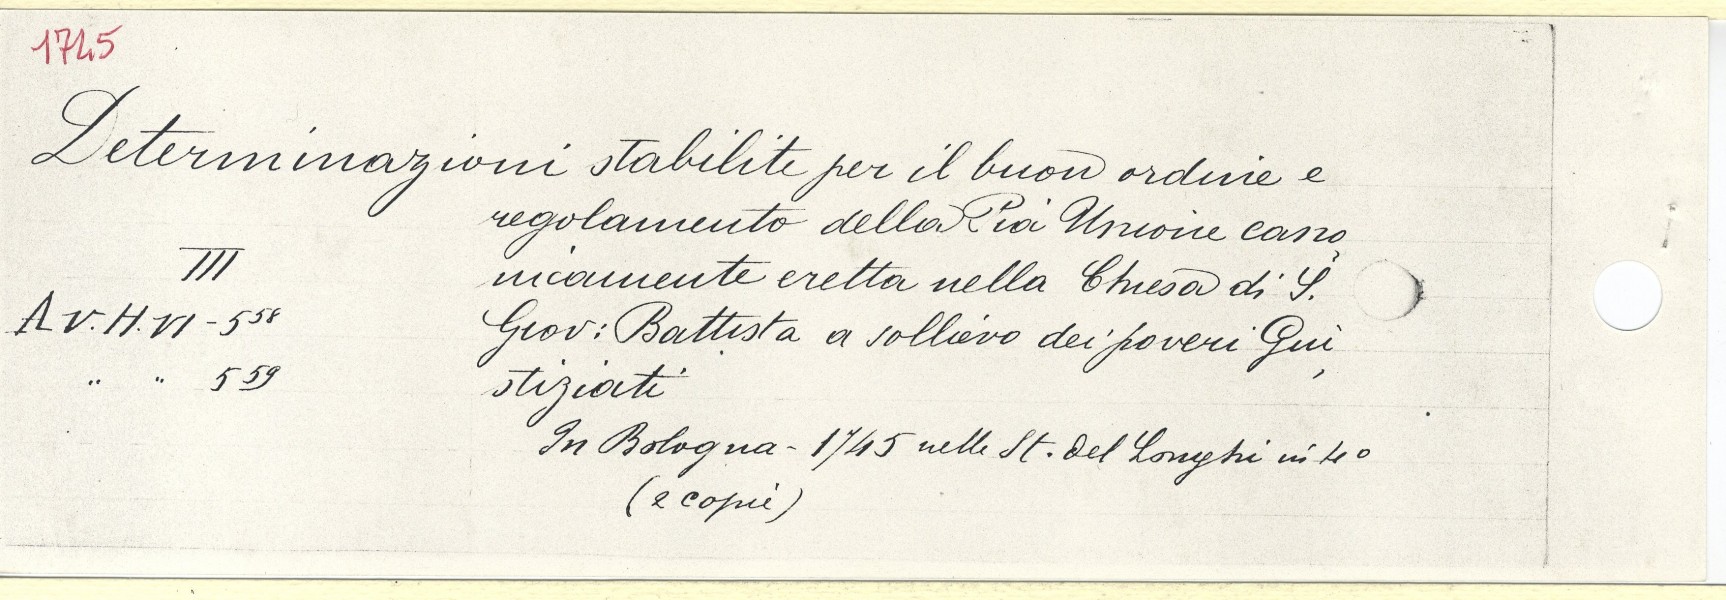 1745
Determinazioni stabilite per il buon ordine e
regolamento della Pia Unione cano,
nicamente eretta nella Chiesa di S.
Giov: Battista a sollievo dei poveri Giu,
stiziati
III
A V. H. VI - 5 58
" " 5 59
In Bologna - 1745 nelle St. del Longhi in 4º
(2 copie)